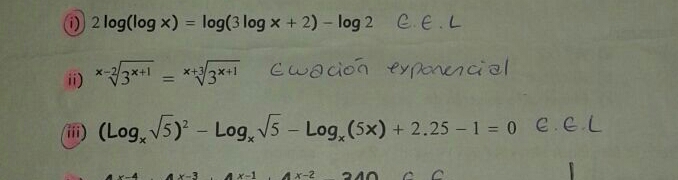 i) 2 log(log x) = log(3 log x + 2) – log 2 E.E.L
ii) ˣ⁻²√3ˣ⁺¹ = ˣ⁺³√3ˣ⁺¹ Ecuación exponencial
iii) (Logₓ √5)² – Logₓ √5 – Logₓ (5x) + 2.25 – 1 = 0 E.E.L